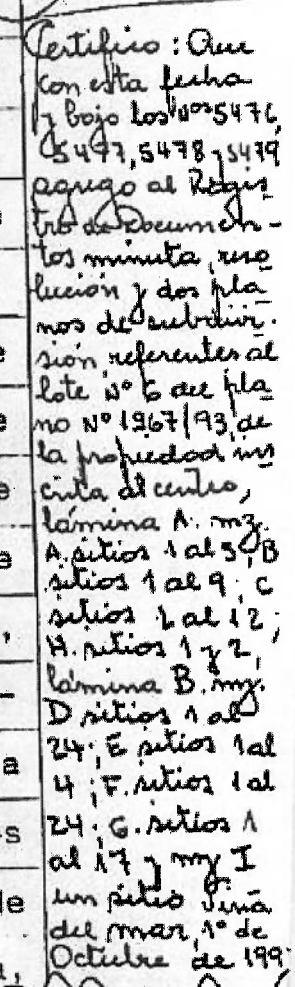 Certifico: Que
con esta fecha
y bajo los Nos 5476,
5477, 5478 y 5479
agrego al Regis
tro de Documen-
tos minuta, reso
lución y dos pla
nos de subdivi-
sión, referentes al
lote N° 6 del pla
no N° 1967/93, de
la propiedad ins
crita al centro,
lámina A. mz.
A. sitios 1 al 5; B
sitios 1 al 9; C
sitios 1 al 12;
H. sitios 1 y 2,
lámina B. mz.
D sitios 1 al
24; E sitios 1 al
4; F. sitios 1 al
24; G. sitios 1
al 17 y mz I
un sitio Viña
del mar, 1° de
Octubre de 199